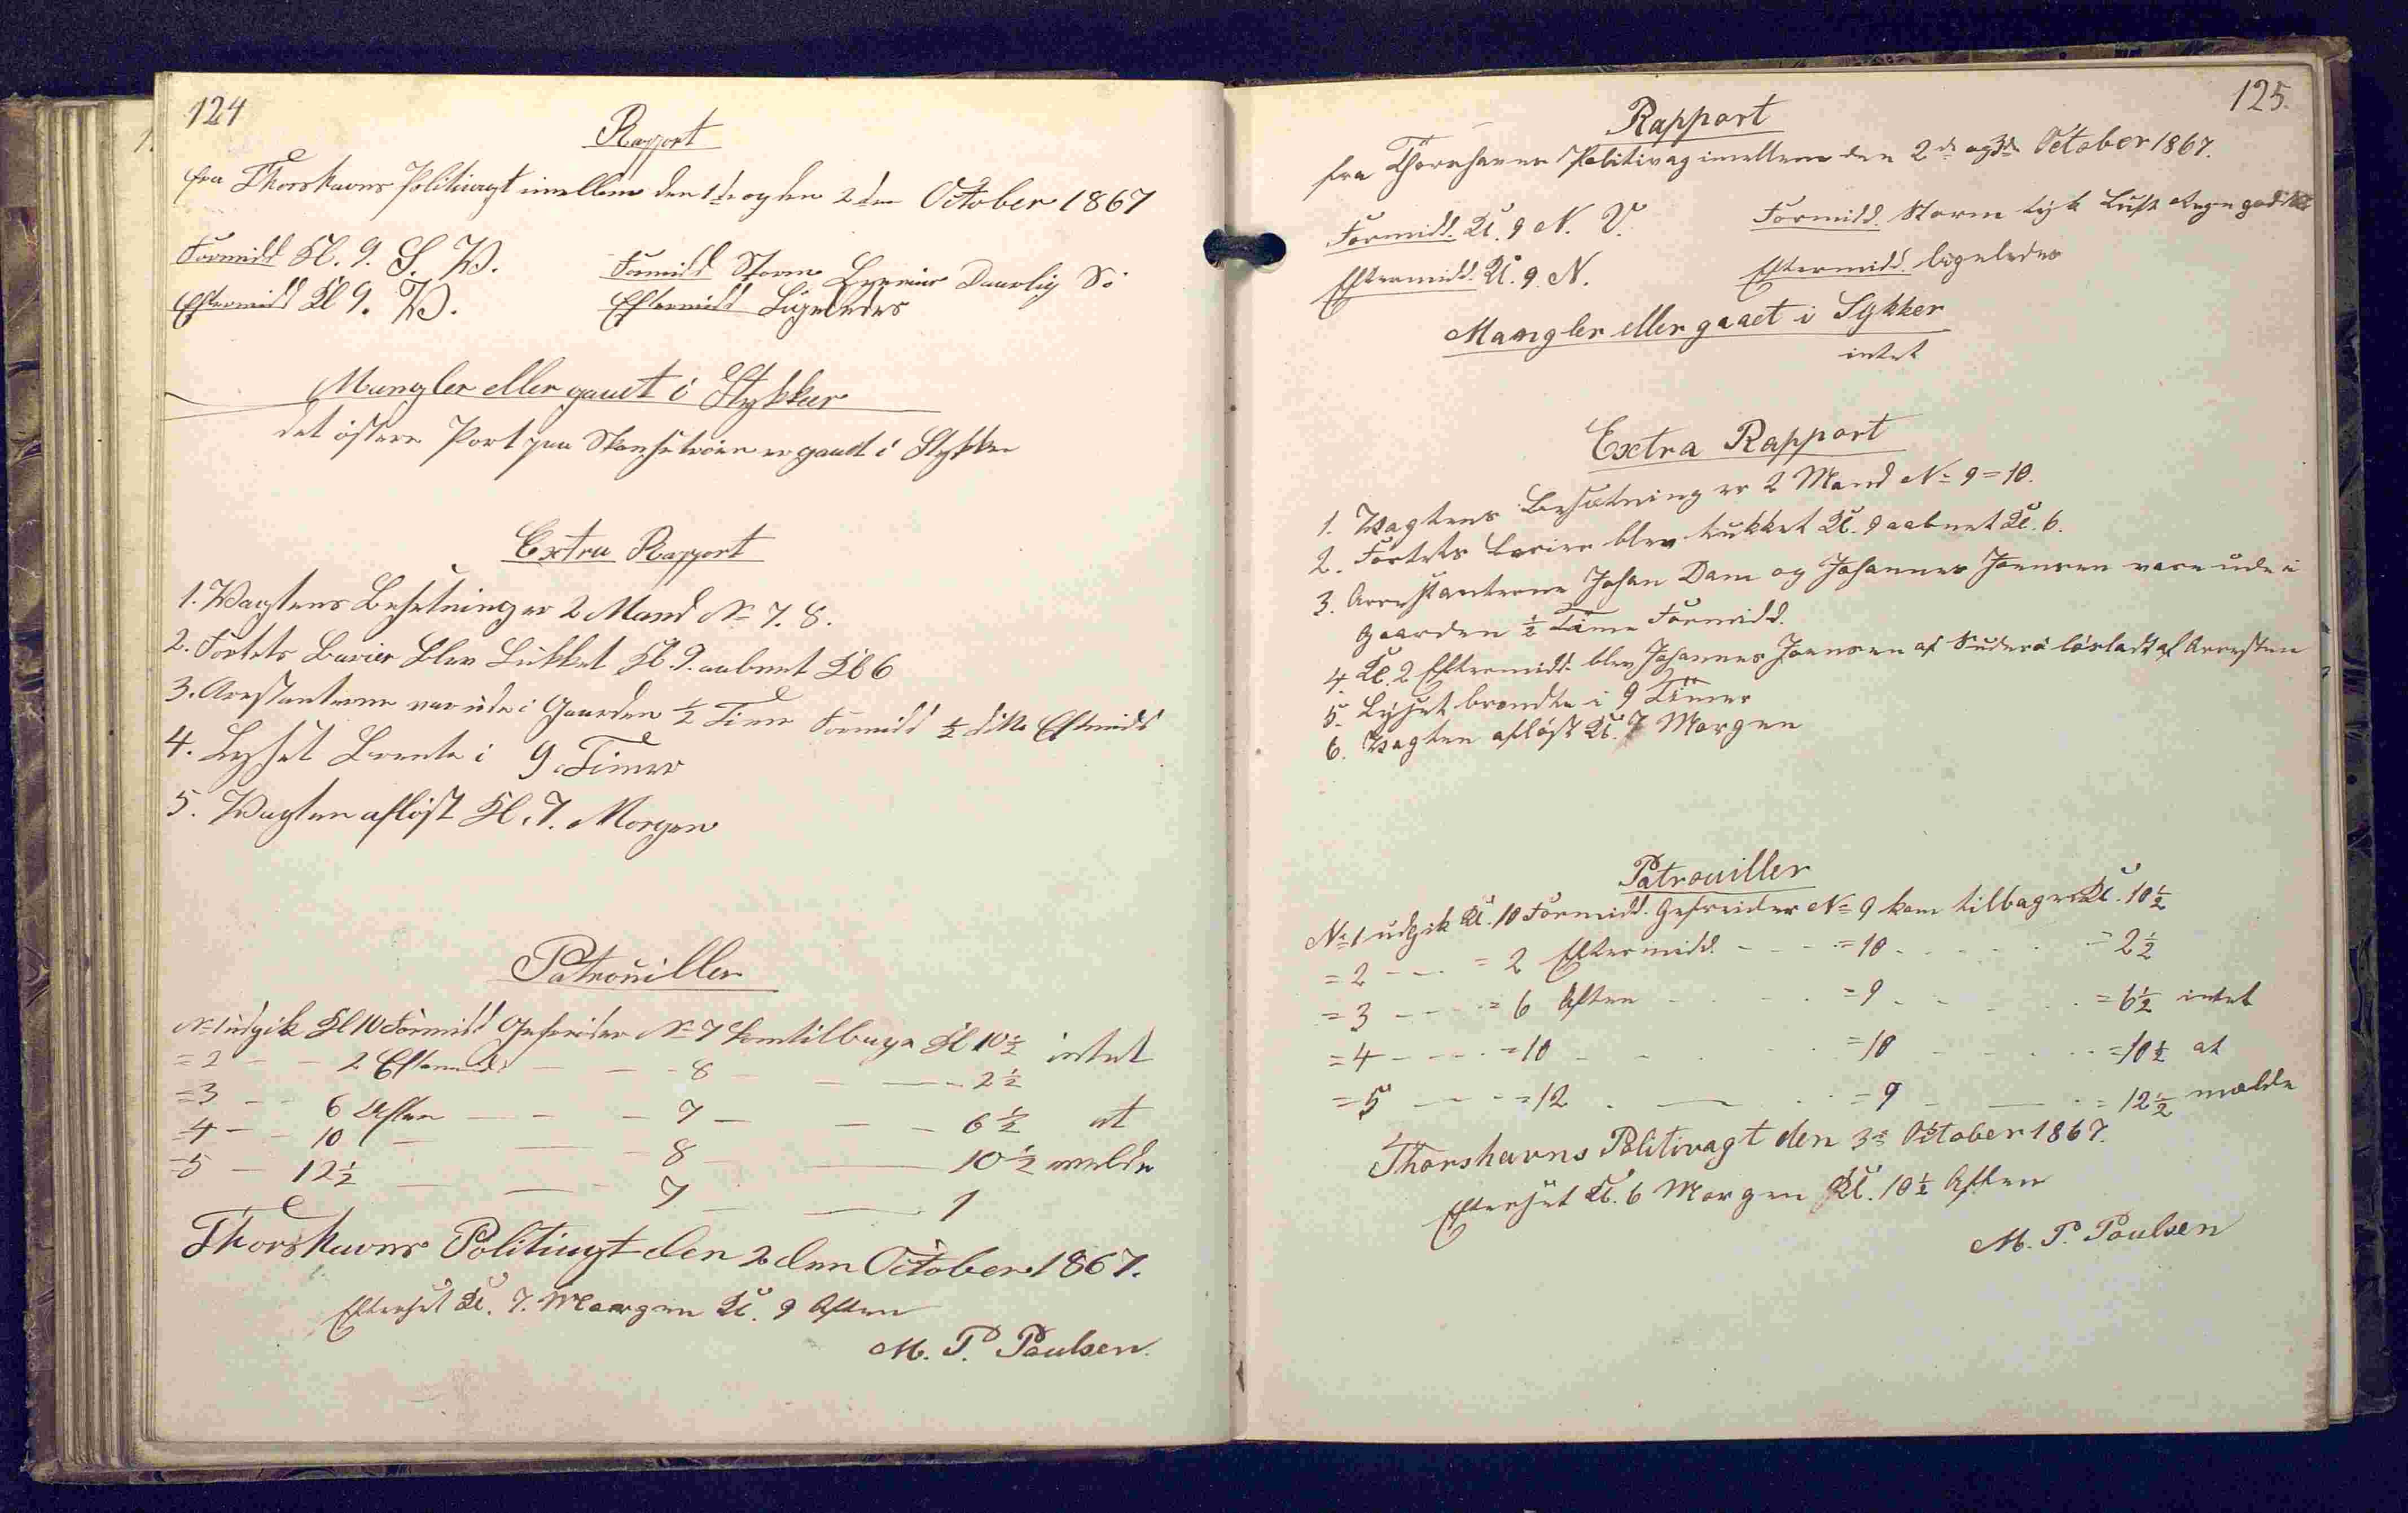 124
Rapport
fra Thorshavns Politivagt imellem den 1ste og den 2den October 1867
Formidd Kl. 9. S. V. Formidd Storm Daarlig Sö
Eftermidd Kl 9. V. Eftermidd Ligeledes
Mangler eller gaaet i Stykker
det östere Port paa er gaaet i Stykker
Extra Rapport
1. Vagtens Besetning er 2 Mand No 7. 8.
2. Fortets Barier Blev Lukket Kl. 9. aabnet Kl 6
3. Arestanterne var ude i Gaarden ½ Time Formidd ½ dito Eftmidd
4. Lyset Brente i 9 Timer
5. Vagten aflöst Kl. 7. Morgen
Patrouiller
No 1 udgik Kl 10 Formidd Gefreider No 7 kom tilbage Kl 10½ intet
=2 - - 2 Eftermidd - - - 8 - - - 2½
=3 - - 6 Aften - - - 7 - - - 6½ at
=4 - - 10 - - - 8 - - 10½ melde
=5 - 12½ - - 7 - - 1
Thorshavns Politivagt den 2den October 1867.
Efterset Kl. 7. Morgen Kl. 9 Aften
M. P. Poulsen
125.
Rapport
fra Thorshavns Politivag imellem den 2de og 3de October 1867.
Formidd. Kl. 9 N. V. Formidd. Storm tyk Luft Regn god
Eftermidd. Kl. 9. N. Eftermidd. ligeledes
Mangler eller gaaet i Sykker
intet
Extra Rapport
1. Vagtens Besætning er 2 Mand No 9=10.
2. Fortets Barier blev lukket Kl. 9 aabnet Kl. 6.
3. Arrestanterne Johan Dam og Johannes Joensen vare ude i
Gaarden ½ Time Formidd.
4. Kl. 2 Eftermidd. blev Johannes Joensen af Suderö lösladt af Arresten
5. Lyset brændte i 9 Timer
6. Vagten aflöst Kl. 7 Morgen
Patrouiller
No 1 udgik Kl. 10 Formidd. Gefreider No 9 kom tilbage Kl. 10½
=2 - - - = 2 Eftermidd. - - - =10 - - - = 2½
=3 - - - = 6 Aften - - - =9 - - - =6½ intet
=4 - - - =10 - - - =10 - - - =10½ at
=5 - - - =12 - - - =9 - - - = 12½ mælde
Thorshavns Politivagt den 3de October 1867.
Efterset Kl. 6 Morgen Kl. 10½ Aften
M. P. Poulsen